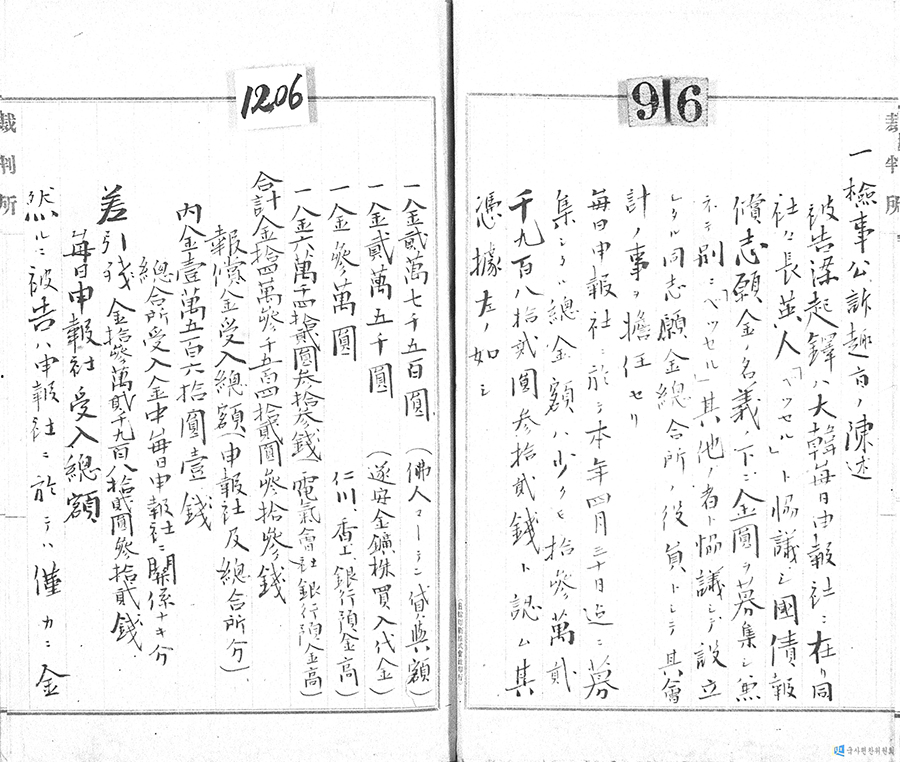 916
裁判所
一檢事公訴趣旨ノ陳述
被告梁起鐸ハ大韓毎日申報社ニ在リ同
社々長英人「ベツセル」ト協議シ國債報
償志願金ノ名義ノ下ニ金圓ヲ募集シ兼
ネテ別ニ「ベツセル」其他ノ者ト協議シテ設立
シタル同志願金總合所ノ役員トシテ其會
計ノ事ヲ擔任セリ
毎日申報社ニ於テ本年四月三十日迄ニ募
集シタル總金額ハ少クモ拾參萬貳
千九百八拾貳圓參拾貳錢ト認ム其
憑據左ノ如シ
1206
一金貳萬七千五百圓 (佛人マーテン貸與額)
一金貳萬五千圓 (遂安金鑛株買入代金)
一金參萬圓 仁川、香上銀行預金高)
一金六萬千四拾貳圓參拾參錢(電氣會社銀行預金高)
合計金拾四萬參千五百四拾貳圓參拾參錢
報償金受入總額(申報社及總合所分)
內金壹萬五百六拾圓壹錢
總合所受入金中毎日申報社ニ關係ナキ分
差引殘金拾參萬貳千九百八拾貳圓參拾貳錢
毎日申報社受入總額
然ルニ被告ハ申報社ニ於テハ僅カニ金
裁判所
국사편찬위원회